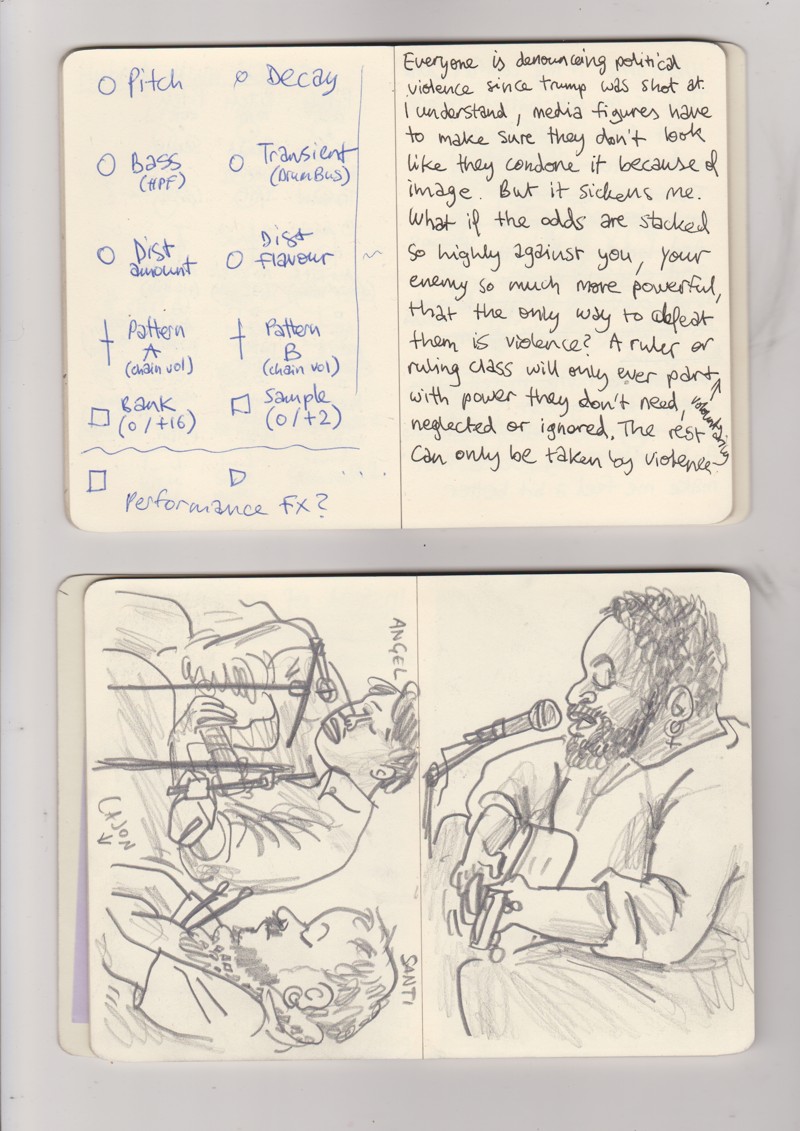 Pitch Decay
Bass Transient
(HPF) (DrumBus)
Dist Dist
amount flavour
Pattern Pattern
A B
(chain vol) (chain vol)
Bank Sample
(0/+16) (0/+2)
Performance FX?
Everyone is denouncing political
violence since trump was shot at.
I understand, media figures have
to make sure they don't look
like they condone it because of
image. But it sickens me.
What if the odds are stacked
so highly against you, your
enemy so much more powerful,
that the only way to defeat
them is violence? A ruler or
ruling class will only ever part
voluntarily
with power they don't need,
neglected or ignored. The rest
can only be taken by violence.
ANGEL
CAJON
SANTI